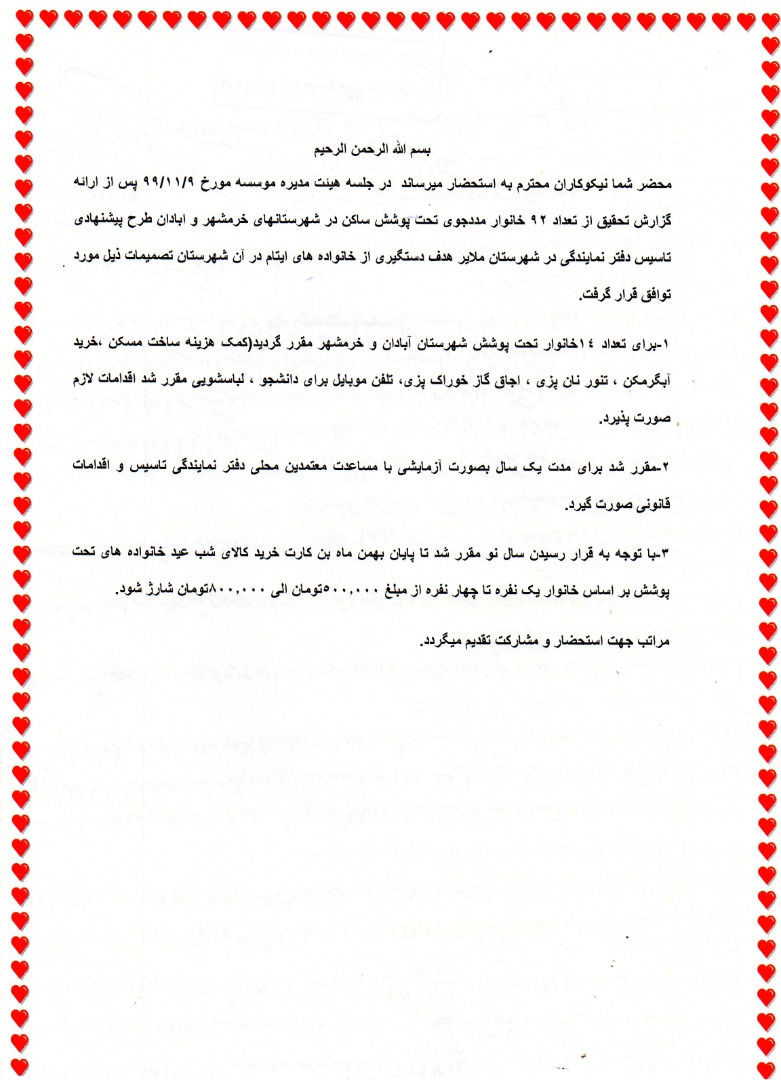 بسم الله الرحمن الرحیم
محضر شما نیکوکاران محترم به استحضار میرساند در جلسه هیئت مدیره موسسه مورخ ۹۹/۱۱/۹ پس از ارائه
گزارش تحقیق از تعداد ۹۲ خانوار مددجوی تحت پوشش ساکن در شهرستانهای خرمشهر و ابادان طرح پیشنهادی
تاسیس دفتر نمایندگی در شهرستان ملایر هدف دستگیری از خانواده های ایتام در آن شهرستان تصمیمات ذیل مورد
توافق قرار گرفت.
۱-برای تعداد ۱۴خانوار تحت پوشش شهرستان آبادان و خرمشهر مقرر گردید(کمک هزینه ساخت مسکن ،خرید
آبگرمکن ، تنور نان پزی ، اجاق گاز خوراک پزی، تلفن موبایل برای دانشجو ، لباسشویی مقرر شد اقدامات لازم
صورت پذیرد.
۲-مقرر شد برای مدت یک سال بصورت آزمایشی با مساعدت معتمدین محلی دفتر نمایندگی تاسیس و اقدامات
قانونی صورت گیرد.
۳-با توجه به قرار رسیدن سال نو مقرر شد تا پایان بهمن ماه بن کارت خرید کالای شب عید خانواده های تحت
پوشش بر اساس خانوار یک نفره تا چهار نفره از مبلغ ۵۰۰,۰۰۰تومان الی ۸۰۰,۰۰۰تومان شارژ شود.
مراتب جهت استحضار و مشارکت تقدیم میگردد.